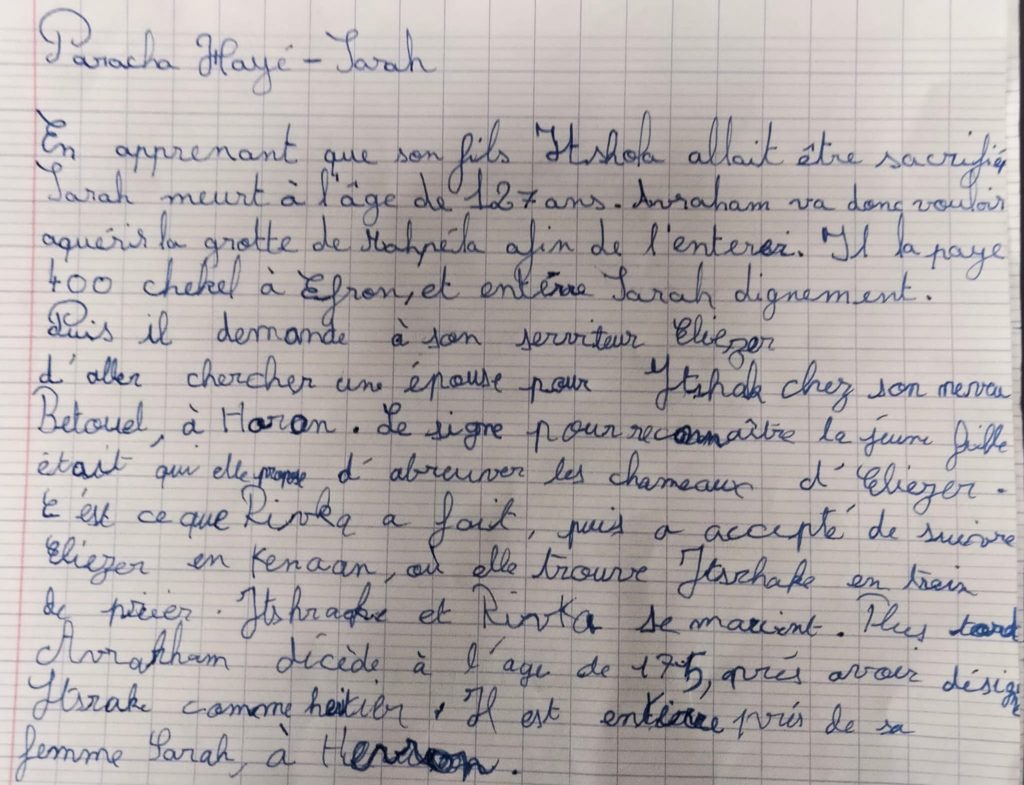 Paracha Hayé - Sarah
En apprenant que son fils Itshak allait être sacrifié,
Sarah meurt à l'âge de 127 ans. Avraham va donc vouloir
aquérir la grotte de Mahpéla afin de l'enterer. Il la paye
400 chekel à Efron, et entérre Sarah dignement.
Puis il demande à son serviteur Eliezer
d'aller chercher une épouse pour Itshak chez son neveu
Betouel, à Haran. Le signe pour reconnaître la jeune fille
était qu'elle propose d'abreuver les chameaux d'Eliezer.
C'est ce que Rivka a fait, puis a accepté de suivre
Eliezer en Kenaan, où elle trouve Itschake en train
de prier. Itshrake et Rivka se marient. Plus tard
Avrakham décède à l'age de 175, après avoir désigné
Itsrake comme héritier. Il est enterre près de sa
femme Sarah, à Hevron.